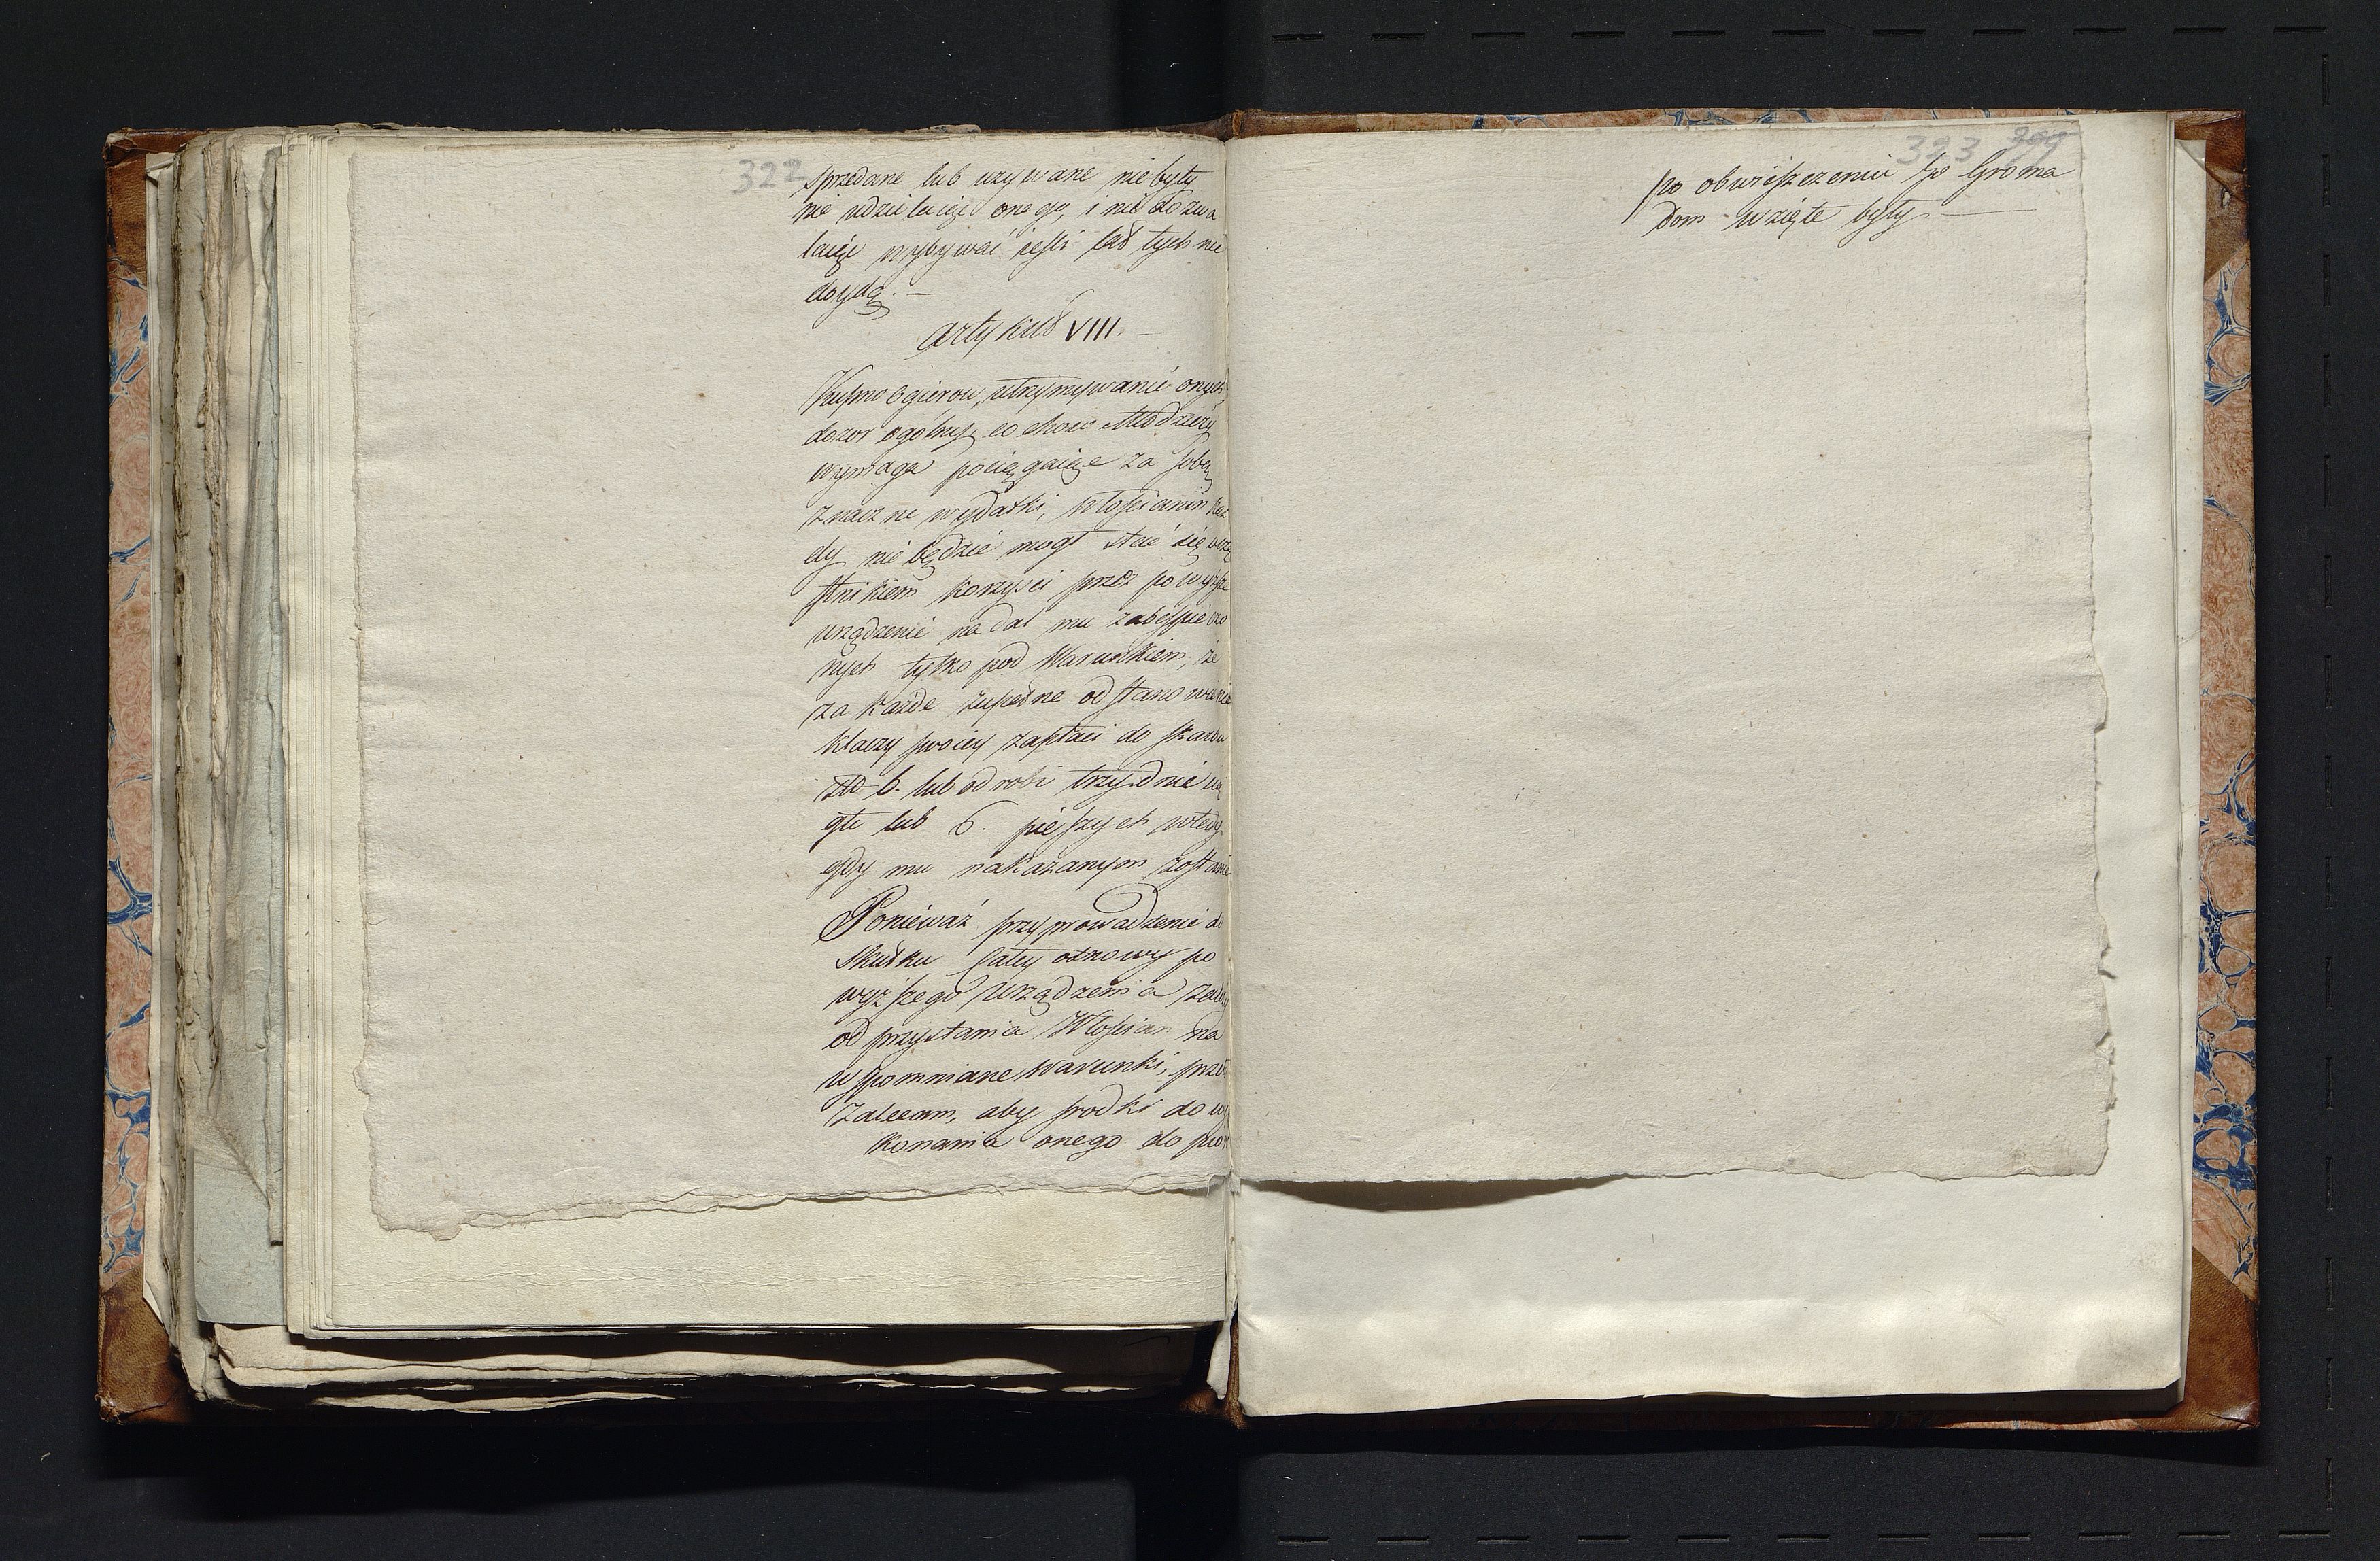 322
sprzedane lub używane niebyły
nie udzielaiąc onego, i nie dozwa
laiąc wybywać iesli lat tych nie
doydą. —
Artykuł VIII. —
Kupno Ogierow, utrzymywanie onych,
dozor ogolny, co chow Młodzieży
wymaga pociągaiąc za sobą
znaczne wydatki, Włoscianin każ
dy nie będzie mogł stać się ucze
stnikiem korzysci przez powyższe
urządzenie nadal mu zabespieczo
nych tylko pod Warunkiem, że
za każde zupełne odstanowienie
klaczy swoiey zapłaci do skarbu
złł 6. lub odrobi trzy dnie cią
głe lub 6. pieszych wtedy
gdy mu nakazanym zostanie
Ponieważ przyprowadzenie do
skutku całey osnowy po
wyższego Urządzenia
od przystania Włoscian na
wspomniane Warunki,
Zalecam, aby srodki do wy
konania onego do
323
po obwieszczeniu go Groma
dom wzięte były. —